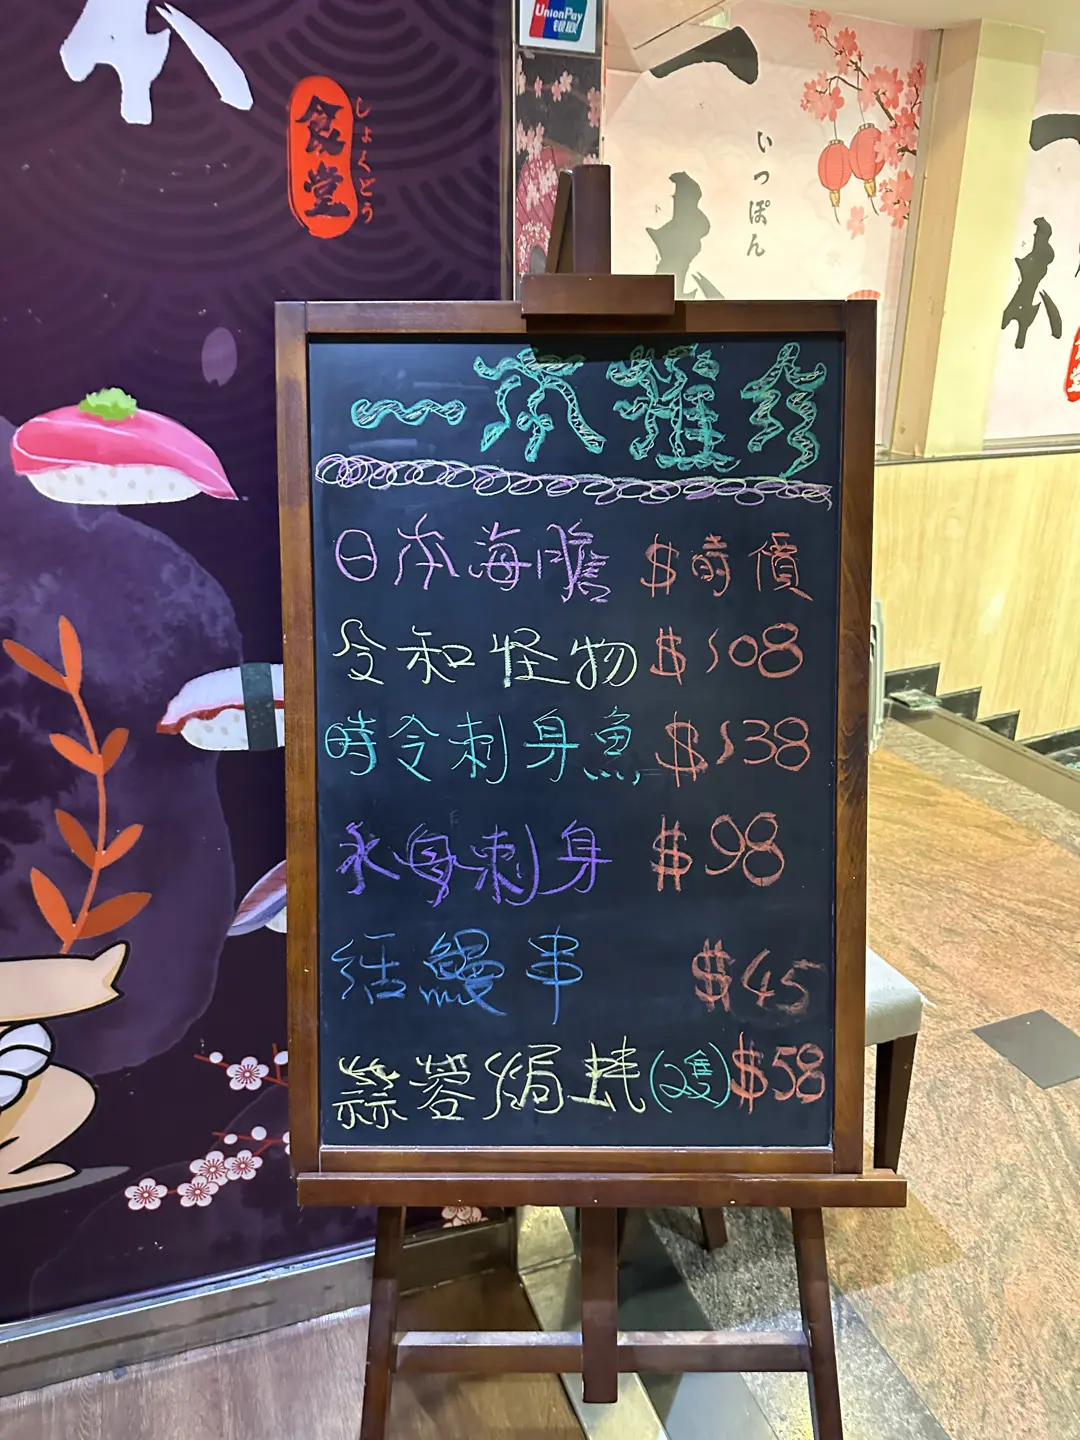 本
食堂
しょくどう
UnionPay
银联
一
いっぽん
本
本
一本推介
日本海膽 $時價
令和怪物 $108
時令刺身魚 $138
刺身 $98
活鰻串 $45
蒜蓉焗蠔(2隻)$58